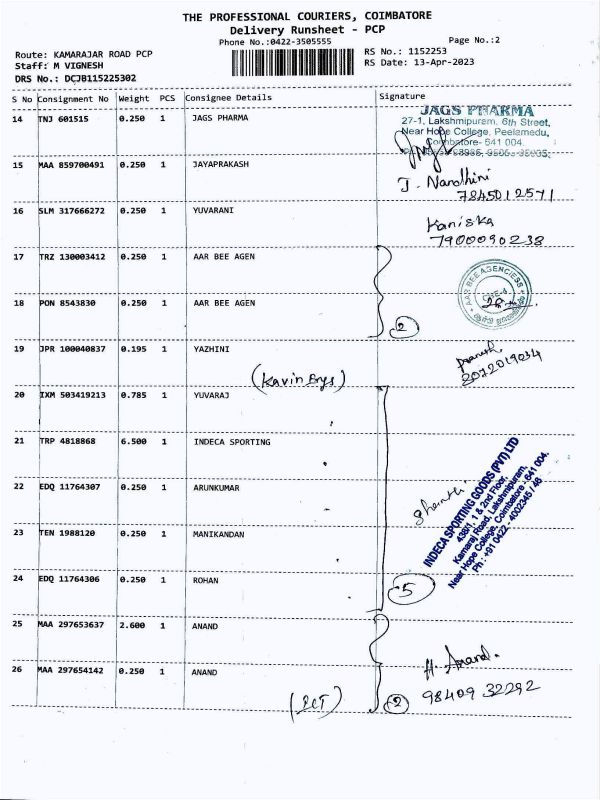 THE PROFESSIONAL COURIERS, COIMBATORE
Delivery Runsheet - PCP
Phone No.:0422-3505555
Page No.:2
Route: KAMARAJAR ROAD PCP
Staff: M VIGNESH
DRS No.: DCJB115225302
RS No.: 1152253
RS Date: 13-Apr-2023
S No Consignment No Weight PCS Consignee Details Signature
14 TNJ 601515 0.250 1 JAGS PHARMA
JAGS PHARMA
27-1, Lakshmipuram, 6th Street,
Near Hope College, Peelamedu,
Coimbatore- 641 004.
15 MAA 859700491 0.250 1 JAYAPRAKASH
J. Nandhini
7845012571
16 SLM 317666272 0.250 1 YUVARANI
Kaniska
7900090238
17 TRZ 130003412 0.250 1 AAR BEE AGEN
AAR BEE AGENCIESS
18 PON 8543830 0.250 1 AAR BEE AGEN
2
19 JPR 100040837 0.195 1 YAZHINI
2072019034
(Kavin Enys)
20 IXM 503419213 0.785 1 YUVARAJ
21 TRP 4818868 6.500 1 INDECA SPORTING
22 EDQ 11764307 0.250 1 ARUNKUMAR
Shanthi
INDECA SPORTING GOODS (PVT) LTD
438/1, 1 & 2nd Floor,
Kamaraj Road, Lakshmipuram,
Near Hope College, Coimbatore - 641 004.
Ph : +91 0422 - 4002345 / 46
23 TEN 1988120 0.250 1 MANIKANDAN
24 EDQ 11764306 0.250 1 ROHAN
5
25 MAA 297653637 2.600 1 ANAND
H. Anand.
26 MAA 297654142 0.250 1 ANAND
98409 32292
2